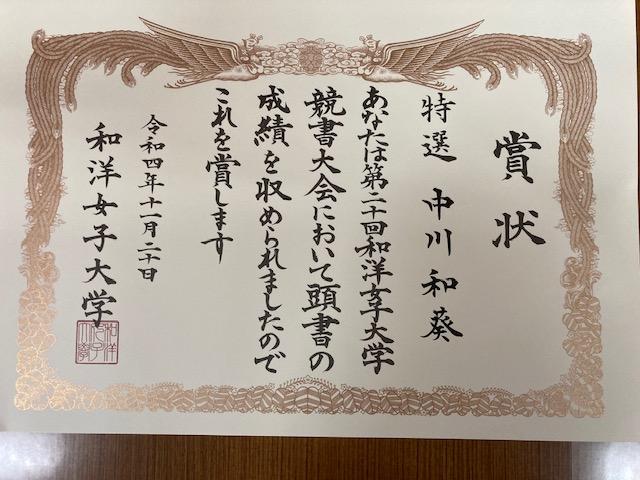 賞状
特選 中川和葵
あなたは第二十回和洋女子大学
競書大会において頭書の
成績を収められましたので
これを賞します
令和四年十一月二十日
和洋女子大学